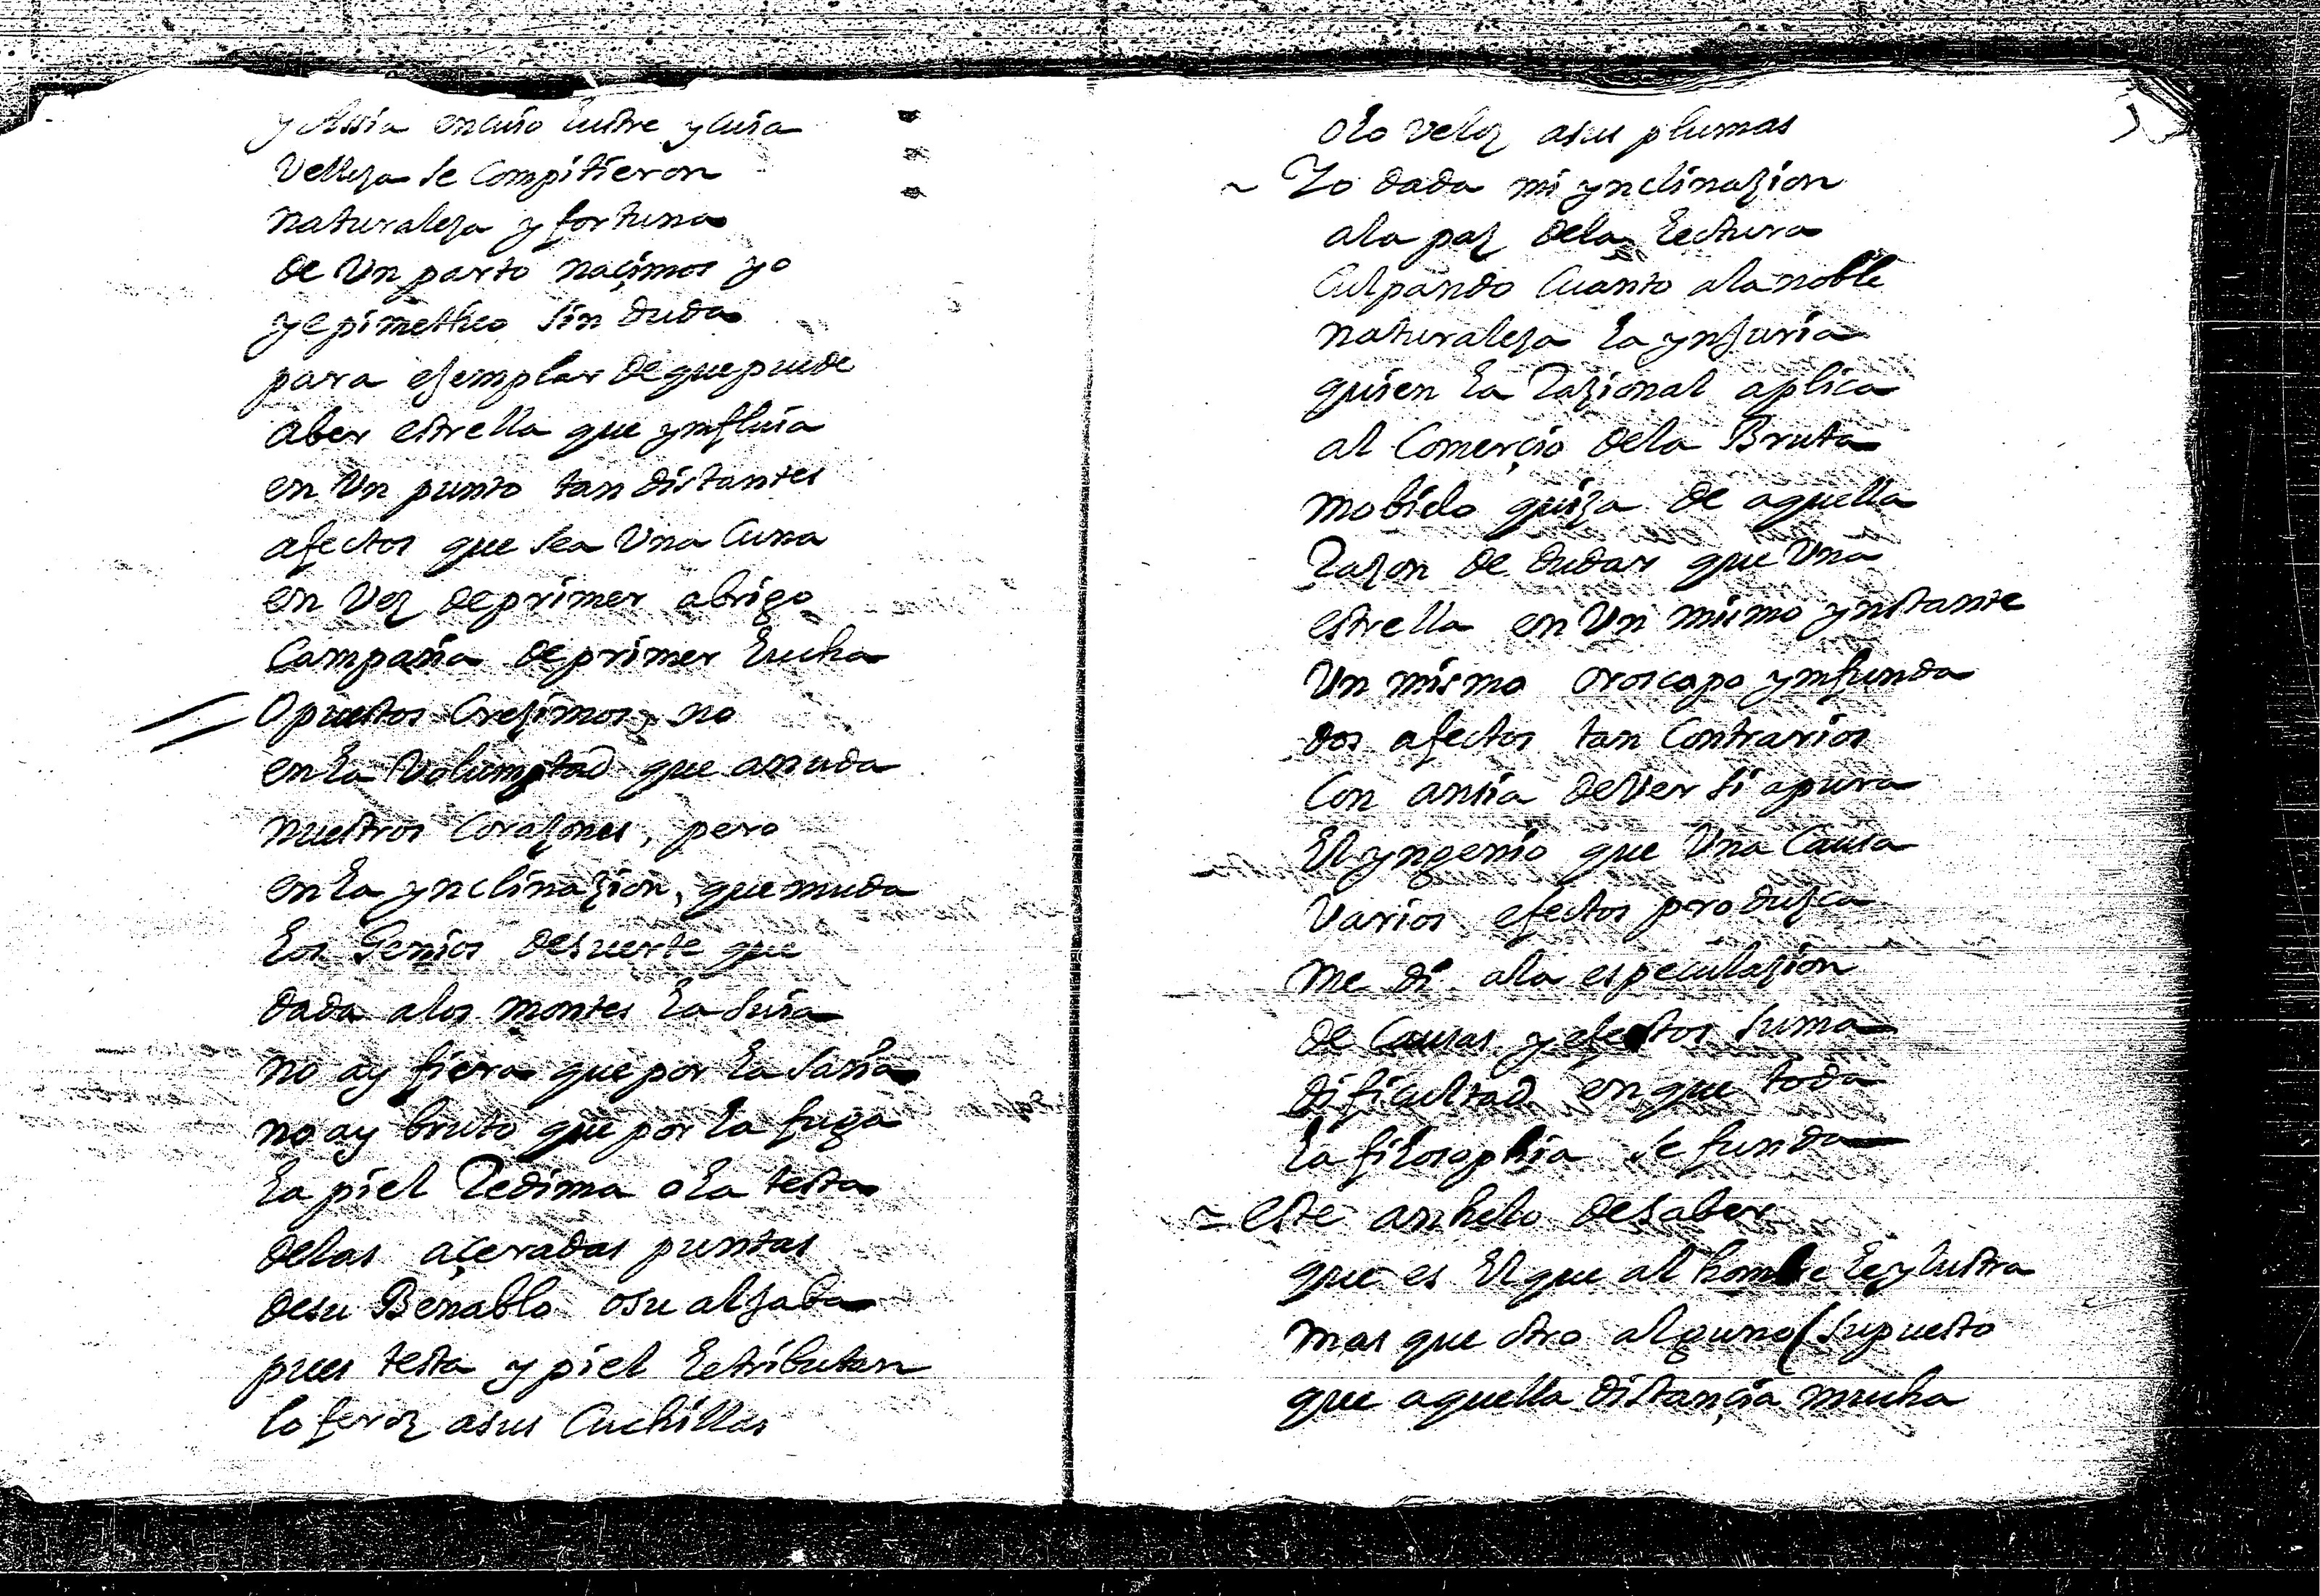 y Assia en cuio lustre y cuia
Velleza se Compitieron
naturaleza y fortuna
de Vn parto naçimos yo
y epimetheo sin duda
para exemplar de que puede
aber estrella que ynfluia
en Vn punto tan distantes
afectos que sea Vna Cuna
en Vez de primer abrigo
Campaña de primer lucha
Opuestos Crezimos, no
en la Volumptad que anuda
nuestros Corazones, pero
en la ynclinazion, que muda
los Genios desuerte que
dada a los montes la suia
no ay fiera que por la saña
no ay bruto que por la fuga
la piel Redima o la testa
delas açeradas puntas
desu Benablo o su alJaba
pues testa y piel le tributan
lo feroz a sus Cuchillas
o lo veloz a sus plumas
~ Yo dada mi ynclinazion
ala paz dela lectura
Culpando Cuanto ala noble
naturaleza la ynJuria
quien la Razional aplica
al Comerçio dela Bruta
mobido quiza de aquella
Razon de dudar que Vna
estrella en Vn mismo ynstante
Vn mismo oroscapo ynfunda
dos afectos tan Contrarios
Con ansia de Ver si apura
El yngenio que Vna Causa
Varios efectos produzca
me di ala especulazion
de Causas y efectos suma
dificultad en que toda
la filosophia se funda
~ este anhelo de saber
que es El que al hombre le ylustra
mas que otro alguno (supuesto
que aquella distançia mucha